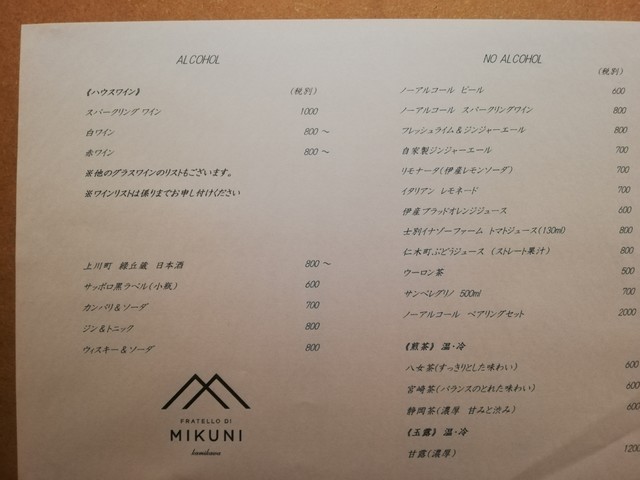 ALCOHOL
《ハウスワイン》 (税別)
スパークリング ワイン 1000
白ワイン 800～
赤ワイン 800～
※他のグラスワインのリストもございます。
※ワインリストは係りまでお申し付けください
上川町 緑丘蔵 日本酒 800～
サッポロ黒ラベル(小瓶) 600
カンパリ&ソーダ 700
ジン&トニック 800
ウィスキー&ソーダ 800
FRATELLO DI
MIKUNI
kamikawa
NO ALCOHOL
(税別)
ノーアルコール ビール 600
ノーアルコール スパークリングワイン 800
フレッシュライム&ジンジャーエール 800
自家製ジンジャーエール 700
リモナータ(伊産レモンソーダ) 700
イタリアン レモネード 700
伊産ブラッドオレンジジュース 600
士別イナゾーファーム トマトジュース(130ml) 800
仁木町ぶどうジュース (ストレート果汁) 800
ウーロン茶 500
サンペレグリノ 500ml 700
ノーアルコール ペアリングセット 2000
《煎茶》 温・冷
八女茶(すっきりとした味わい) 600
宮崎茶(バランスのとれた味わい) 600
静岡茶(濃厚 甘みと渋み) 600
《玉露》 温・冷
甘露(濃厚) 1200